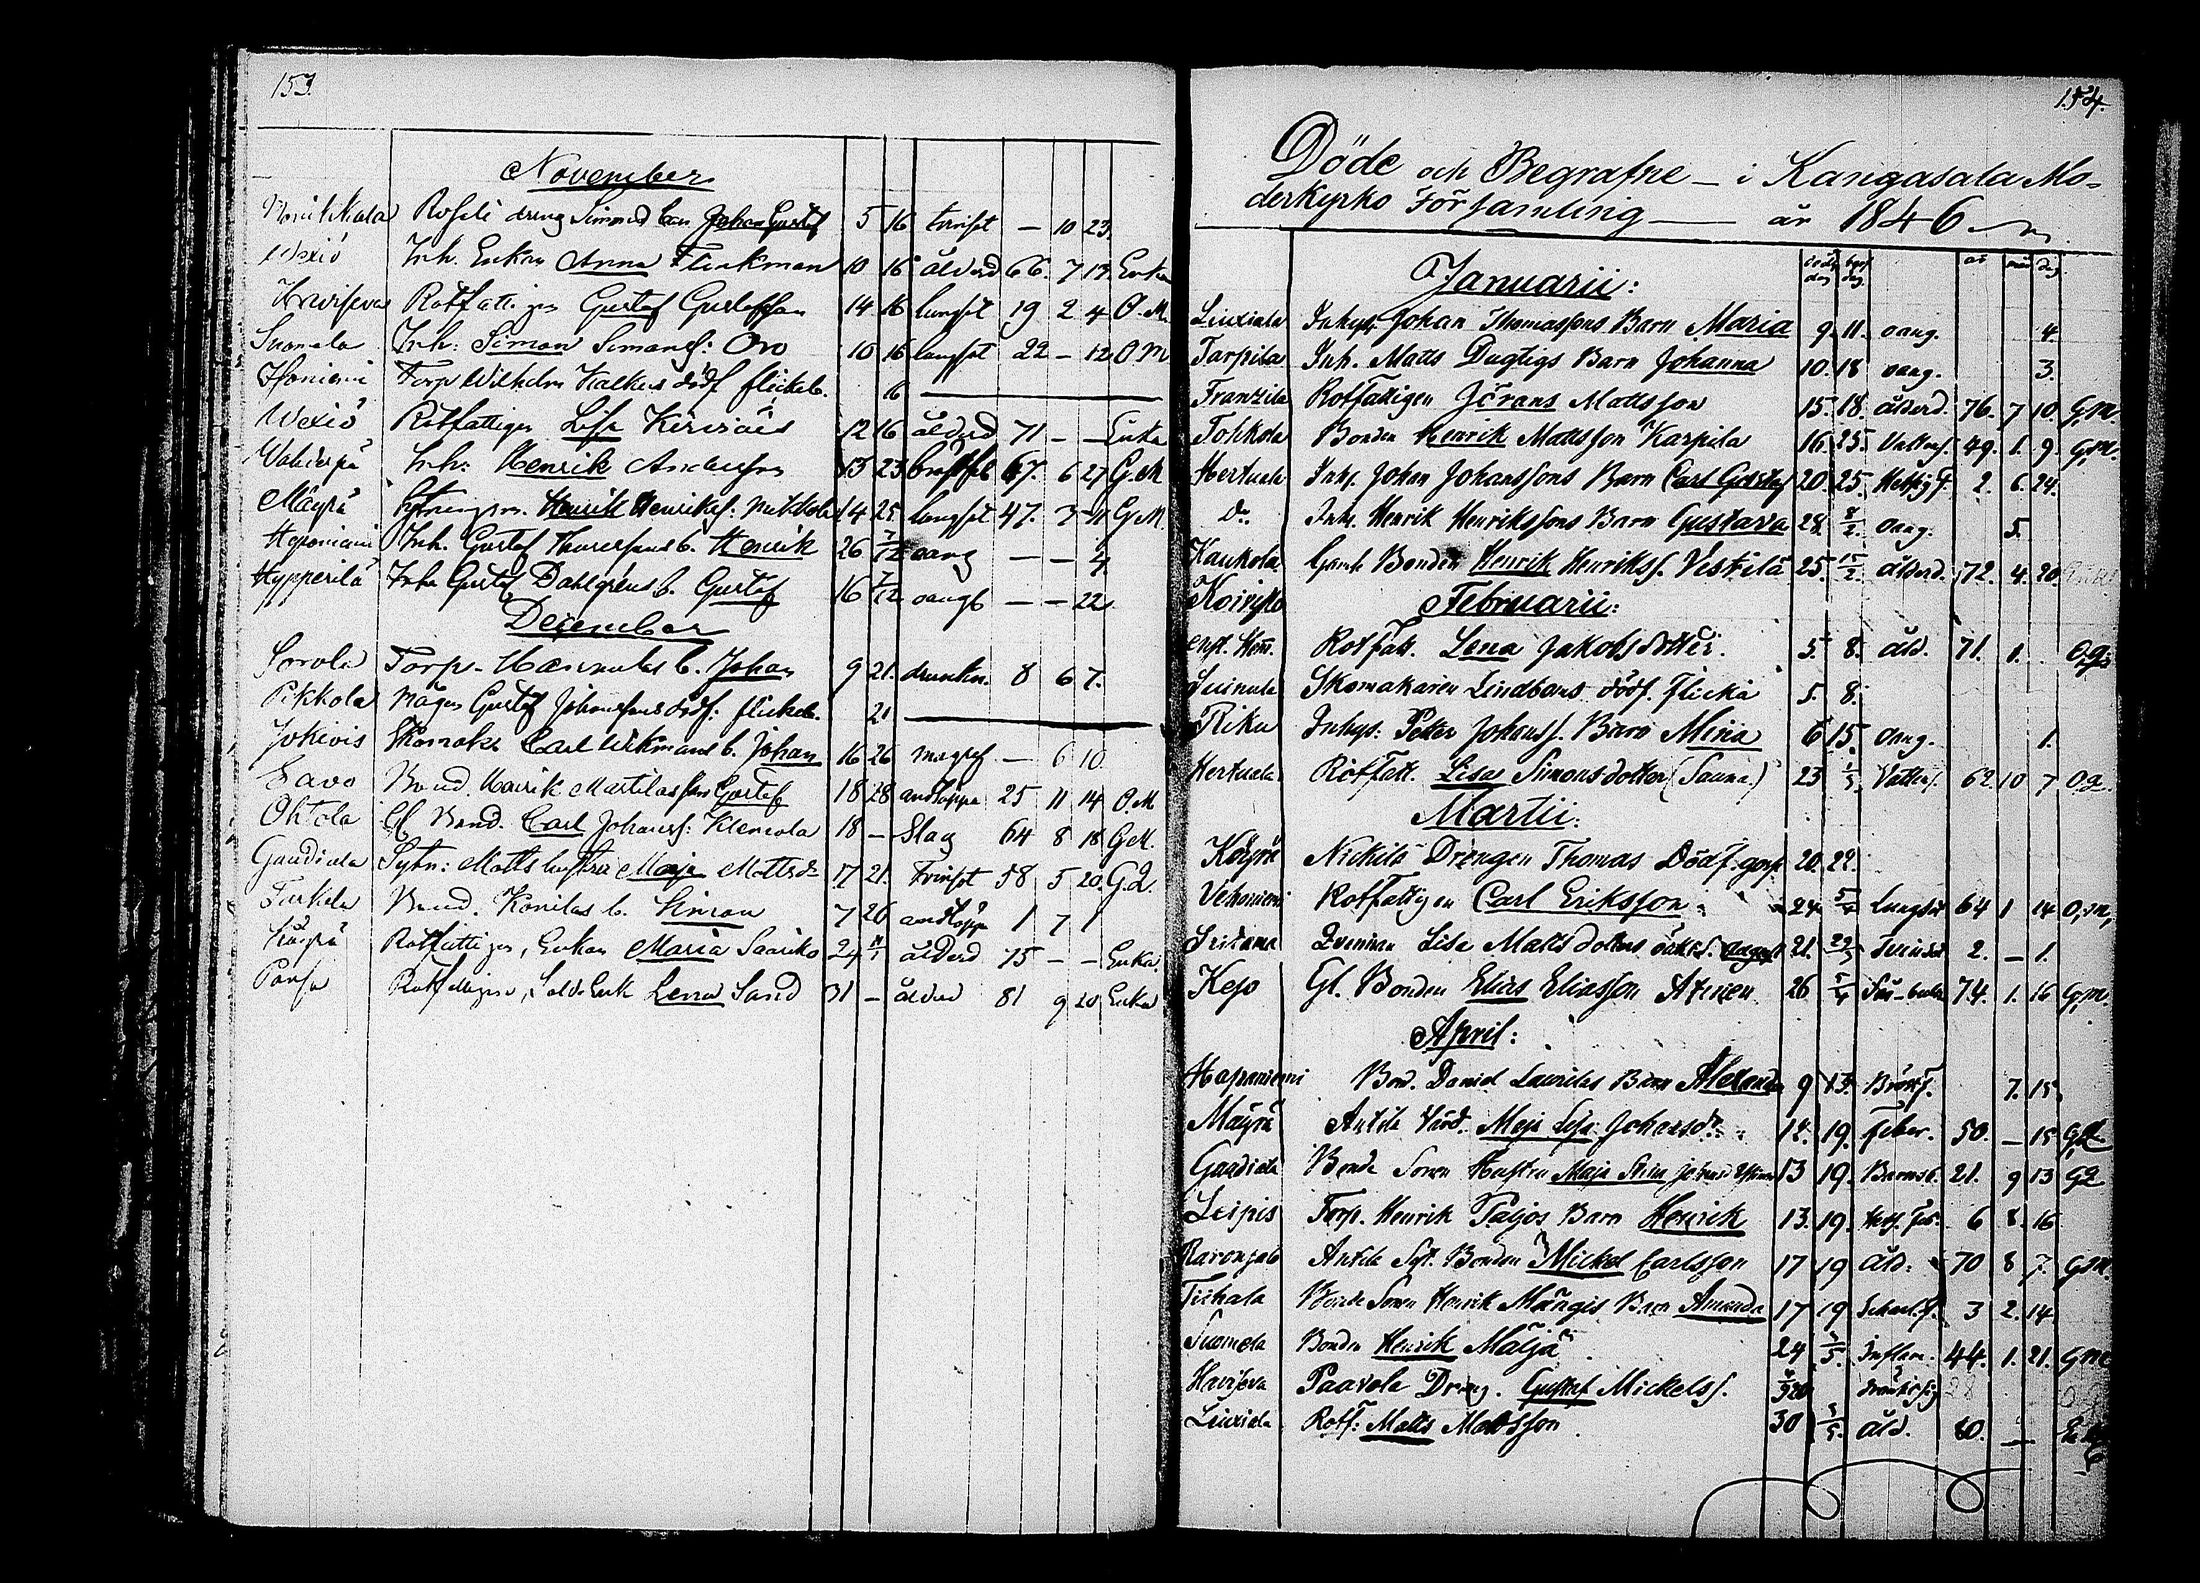 153.
November
Rofeli dreng Simond barn Johan Gustaf 5 16 tvinsot — 10 23.
Wexiö Inh. Enkan Anna Flinkman 10 16 ålderd 66. 7 17. Enka
Haviseva Rotfattigen Gustaf Gustafsson 14 16 lungsot 19 2 4 O.M.
Suomela Inh: Simon Simonss: Oro 10 16 lungsot 22 — 12 O M
Torp Wilhelm dödf flickeb. 6
Wexiö Rotfattigen Lisa 12 16 ålderd 71 — — Enka
Inh: Henrik Andersson 13 23 bröstfeb 67. 6 27 G.M
Mäyrä Henrik Henrikss: Mikkola 14 25. lungsot 47. 3 11 G M.
Haponiemi Inh. Gustaf b. Henrik 26 7/12 oang — — 4
Hypperilä Inh Gustaf Dahlgréns b. Gustaf 16 7/12 oangt — — 22
December
Sorola Torp. b. Johan 9 21. drunkn. 8 6 7.
Pikkola Mågen Gustaf Johanssons dödf: flickeb. 21
Jokiois Skomak: Carl Wikmans b. Johan 16 26 magsj — 6 10
Savo Bond. Henrik Martilas son Gustaf 18 28 andtäppa 25 11 14 O.M
Ohtola Gl Bond. Carl Johanss: Klemola 18 — Slag 64 8 18 G.M.
Gaudiala Sytn: Matts hustru Maja Mattsdr 17. 21. Tvinsot 58 5 20. G.Q.
Turkela Bond. Konilas b. Simon 7 26 andtäpp 1 7 1
Käyrä Rotfattigen, Enkan Maria Saariko 24 ålderd 75 — — Enka.
Rotfattigen, Sold. Enk Lena Sand 31 — ålderd 81 9 20 Enka
154.
Döde och Begrafne — i Kangasala Mo-
derkyrko Församling — år 1846
död dag begr dag år mån dag
Januarii:
Liuxiala Inhys Johan Thomassons Barn Maria 9. 11. oang. 4.
Tarpila Inh. Matts Dugtigs Barn Johanna 10. 18 oang. 3.
Franzila Rotfattigen Jörans Mattsson 15. 18. ålderd. 76. 7 10. G,M.
Tohkola Bonden Henrik Mattsson Karpila 16. 25. Vattens. 49. 1. 9. G,M.
Hertuala Inhs. Johan Johanssons Barn Carl Gustaf 20. 25. Hetsigf. 2. 6. 24.
Do Inh. Henrik Henrikssons Barn Gustava 28. 8/2. oang. 5.
Kaukola Gamle Bonden Henrik Henrikss. Vestilä 25. 15/2. ålderd. 72. 4. 20.
Koivisto
Februarii:
Rotfatt. Lena Jakobsdotter. 5. 8. åld. 71. 1. O,g:
Suinula Skomakaren Lindboms dödf. Flicka 5. 8.
Riku Inhys: Petter Johanss. Barn Miina 6 15. oang. 1.
Hertuala Rotfatt. Lisa Simonsdotter (Sauna) 23 1/3. Vattens. 62. 10 7 O.g.
Martii:
Käyrä Nickilä Drengen Thomas Dödf. goss 20. 22.
Vehoniemi Rotfattigen Carl Eriksson 24. 5/4 Lungsot 64 1 14 O,M,
Lisa Mattsdotters oäkta S. August 21. 22/3 Tvinsot 2. — 1.
Kejo Gl. Bonden Elias Eliasson 26 5/4 74. 1. 16 G,M.
April:
Haponiemi Bond. Daniel Laurilas Barn Alexander 9 13. Bröstf. 7. 15.
Mäyrä Anttila Värd. Maja Lisa Johansdr. 14. 19. Feber. 50. — 15
Gaudiala Bonde Sonen Hustru Maja Stina 13 19. Barnsb. 21. 9 13 GQ
Leipis Torp. Henrik Paljos Barn Henrik 13. 19. Hets. Feb. 6 8. 16
Raronsalo Anttila Syt. Bonden Mickel Carlsson 17 19 åld. 70 8 7. G,M.
Tiihala Bonde Sonen Henrik Mångis Barn Amanda 17 19 3 2. 14
Suomela Bonden Henrik Mäljä 24 3/5. Inflam. 44. 1. 21. G M
Haviseva Paavola Dreng. Gustaf Mickelss. 28
Liuxiala Rotf: Matts Mattsson 30 3/5. åld. 80. —